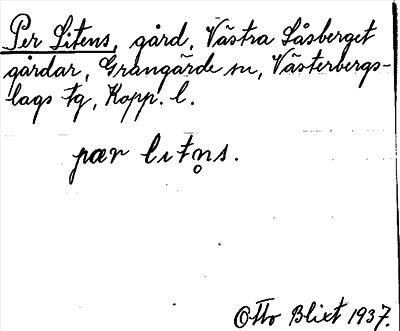 Per Litens, gård, Västra Låsberget
gårdar, Grangärde sn, Västerbergs-
lags tg, Kopp. l.
pær litn̥s.
Otto Blixt 1937.